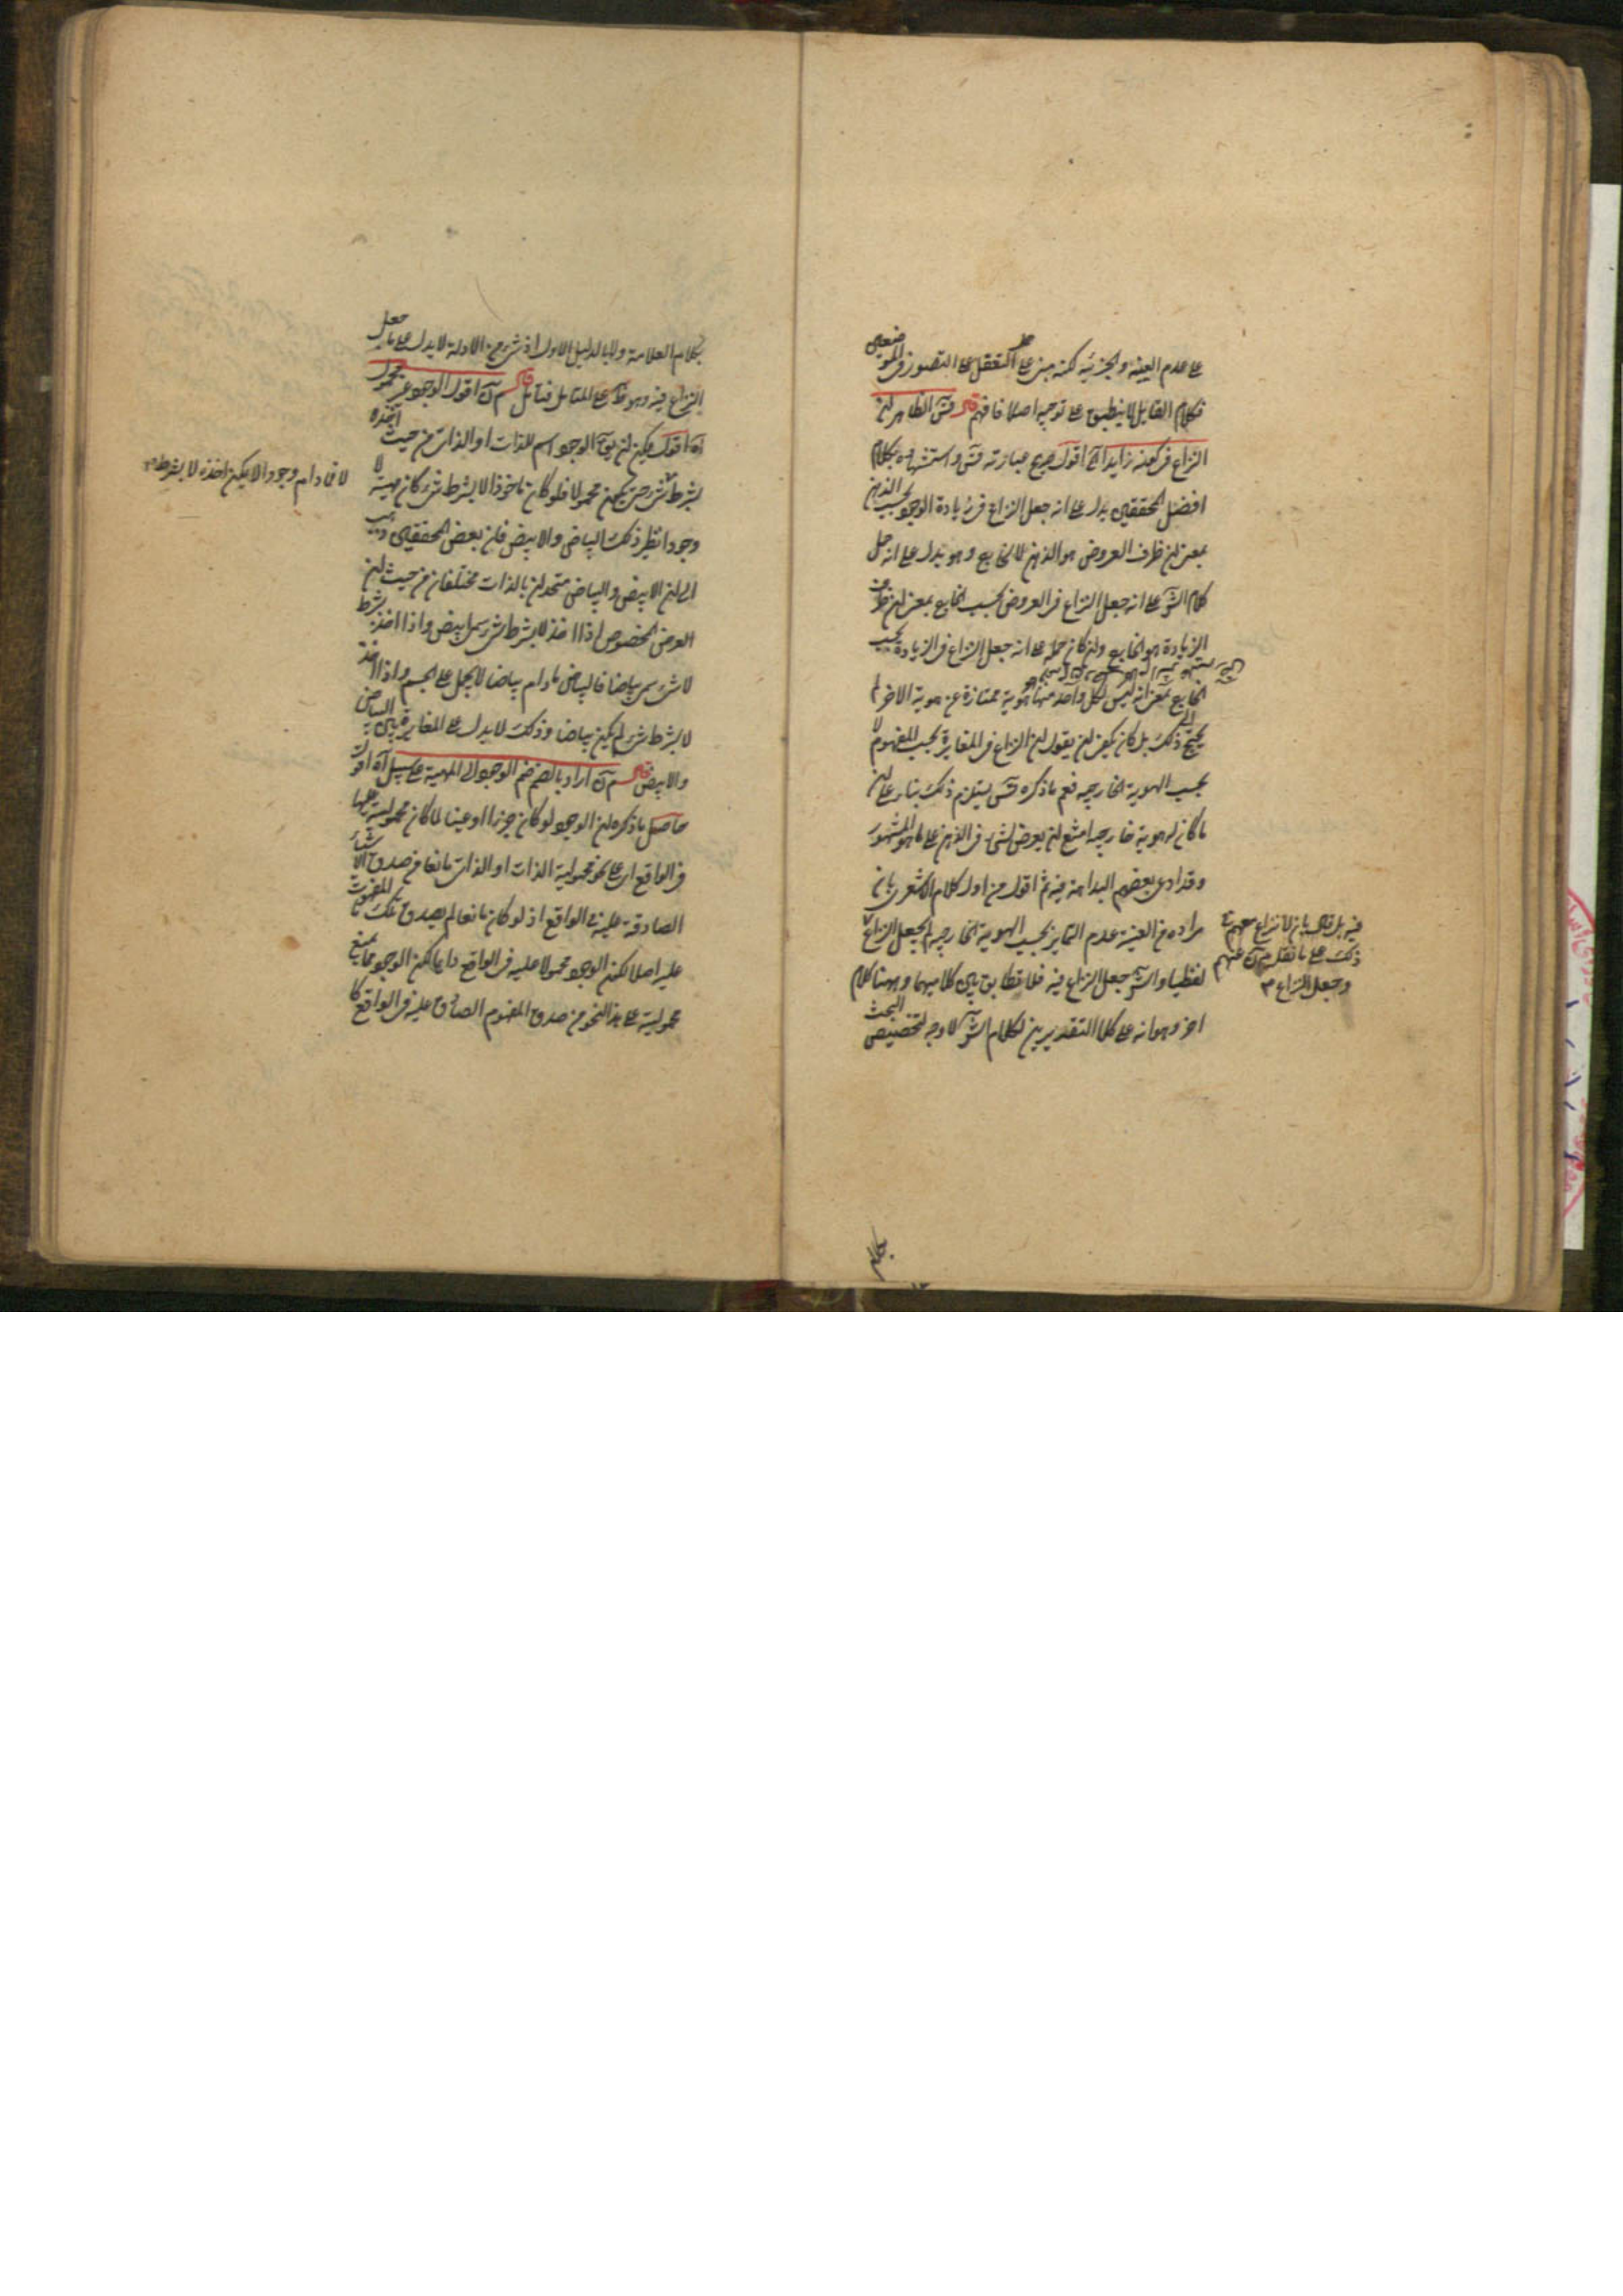 على عدم العينية والجزئية لكنه مبنى على حمل التعقل على التصور فى الموضعين
فكلام القايل لا ينطبق على توجيه اصلا فافهم قال قس الظاهر ان
النزاع فى كونه زايدا الخ اقول صريح عبارته قس واستشهاده بكلام
افضل المحققين يدل على انه جعل النزاع فى زيادة الوجود بحسب الذهن
بمعنى ان ظرف العروض هو الذهن لا الخارج وهو يدل على انه حمل
كلام الش على انه جعل النزاع فى العروض بحسب الخارج بمعنى ان ظرف
الزيادة هو الخارج ولو كان حمله على انه جعل النزاع فى الزيادة بحسب
الخارج بمعنى انه ليس لكل واحد منهما هوية ممتازة عن هوية الاخر لم
يحتج الى ذلك بل كان يكفى ان يقول ان النزاع فى المغايرة بحسب المفهوم لا
بحسب الهوية الخارجية نعم ما ذكره قس يستلزم ذلك بناء على ان
ما كان له هوية خارجية امتنع ان يعرض لشىء فى الذهن على ما هو المشهور
وقد ادعى بعضهم البداهة فيه ثم اقول من اول كلام الاشعرى بان
مراده من العينية عدم التمايز بحسب الهوية الخارجية لم يجعل النزاع الا
لفظيا والش جعل النزاع فيه فلا تطابق بين كلاميهما وههنا كلام
اخر وهو انه على كلا التقديرين لكلام الش لا وجه لتخصيص البحث
فيه بل قال بانه لا نزاع معهم فى
ذلك على ما نقل عنهم
وجعل النزاع
بكلام
بكلام العلامة ولا بالدليل الاول اذ شىء من الادلة لا يدل على ما جعل
النزاع فيه وهو ظ على المتامل فتامل قال اقول الوجود غير محمول
اه اقول يمكن ان يق الوجود اسم للذات او الذات من حيث اخذه
بشرط شىء حتى يكون محمولا فلو كان ماخوذا لا بشرط شىء كان مهية لا
وجودا نظير ذلك البياض والابيض فان بعض المحققين ذهب
الى ان الابيض والبياض متحدان بالذات مختلفان من حيث ان
العرض المخصوص اذا اخذ لا بشرط شىء سمى ابيض واذا اخذ بشرط
لا شىء سمى بياضا فالبياض ما دام بياضا لا يحمل على الجسم واذا اخذ
لا بشرط شىء لم يكن بياضا وذلك لا يدل على المغايرة بين البياض
والابيض قال اراد بالضم ضم الوجود الى المهية على سبيل اه اقول
حاصل ما ذكره ان الوجود لو كان جزءا او عينا لما كان محموليته عليها
فى الواقع اى على نحو محمولية الذات او الذاتى مانعا من صدق الاشياء
الصادقة عليه فى الواقع اذ لو كان مانعا لم يصدق تلك المفهومات
عليه اصلا لكون الوجود محمولا عليه فى الواقع دايما لكن الوجود مما يمنع
محموليته على هذا النحو من صدق المفهوم الصادق عليه فى الواقع كا
لا فما دام وجودا لا يمكن اخذه لا بشرط